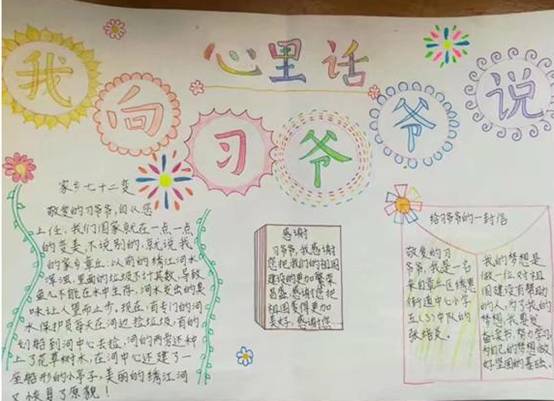 心里话
我向习爷爷说
家乡七十二变
敬爱的习爷爷,自从您
上任,我们国家就在一点一点
的变美,不说别的,就说我
的家乡章丘,以前的绣江河水
浑浊,里面的垃圾不计其数,导致
鱼儿不能在水中生存,河水发出的臭
味让人望而止步。现在,有专门的河
水保护员每天在河边捡垃圾,有的
划船到河中心去捡,河的两旁还种
上了花草树木,在河中心还建了一
座船形的小亭子,美丽的绣江河
又恢复了原貌!
感谢
习爷爷,我感谢
您把我们的祖国
建设的更加繁荣
昌盛,感谢您把
祖国变得更加
美好。感谢您
给习爷爷的一封信
敬爱的习
爷爷,我是一名
来自章丘区绣惠
街道中心小学
五(3)中队的
张绪
我的梦想是
做一位对祖
国建设有帮助
的人,为了我的
梦想,我要
备读书,努力学习
为自己的梦想做
好坚固的基础。